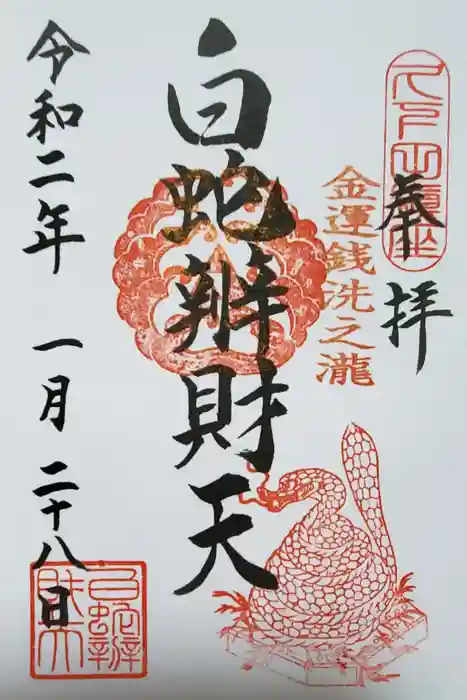 久下田鎮座
奉拝
金運銭洗之瀧
白蛇辨財天
令和二年 一月 二十八日
白蛇辨
財天